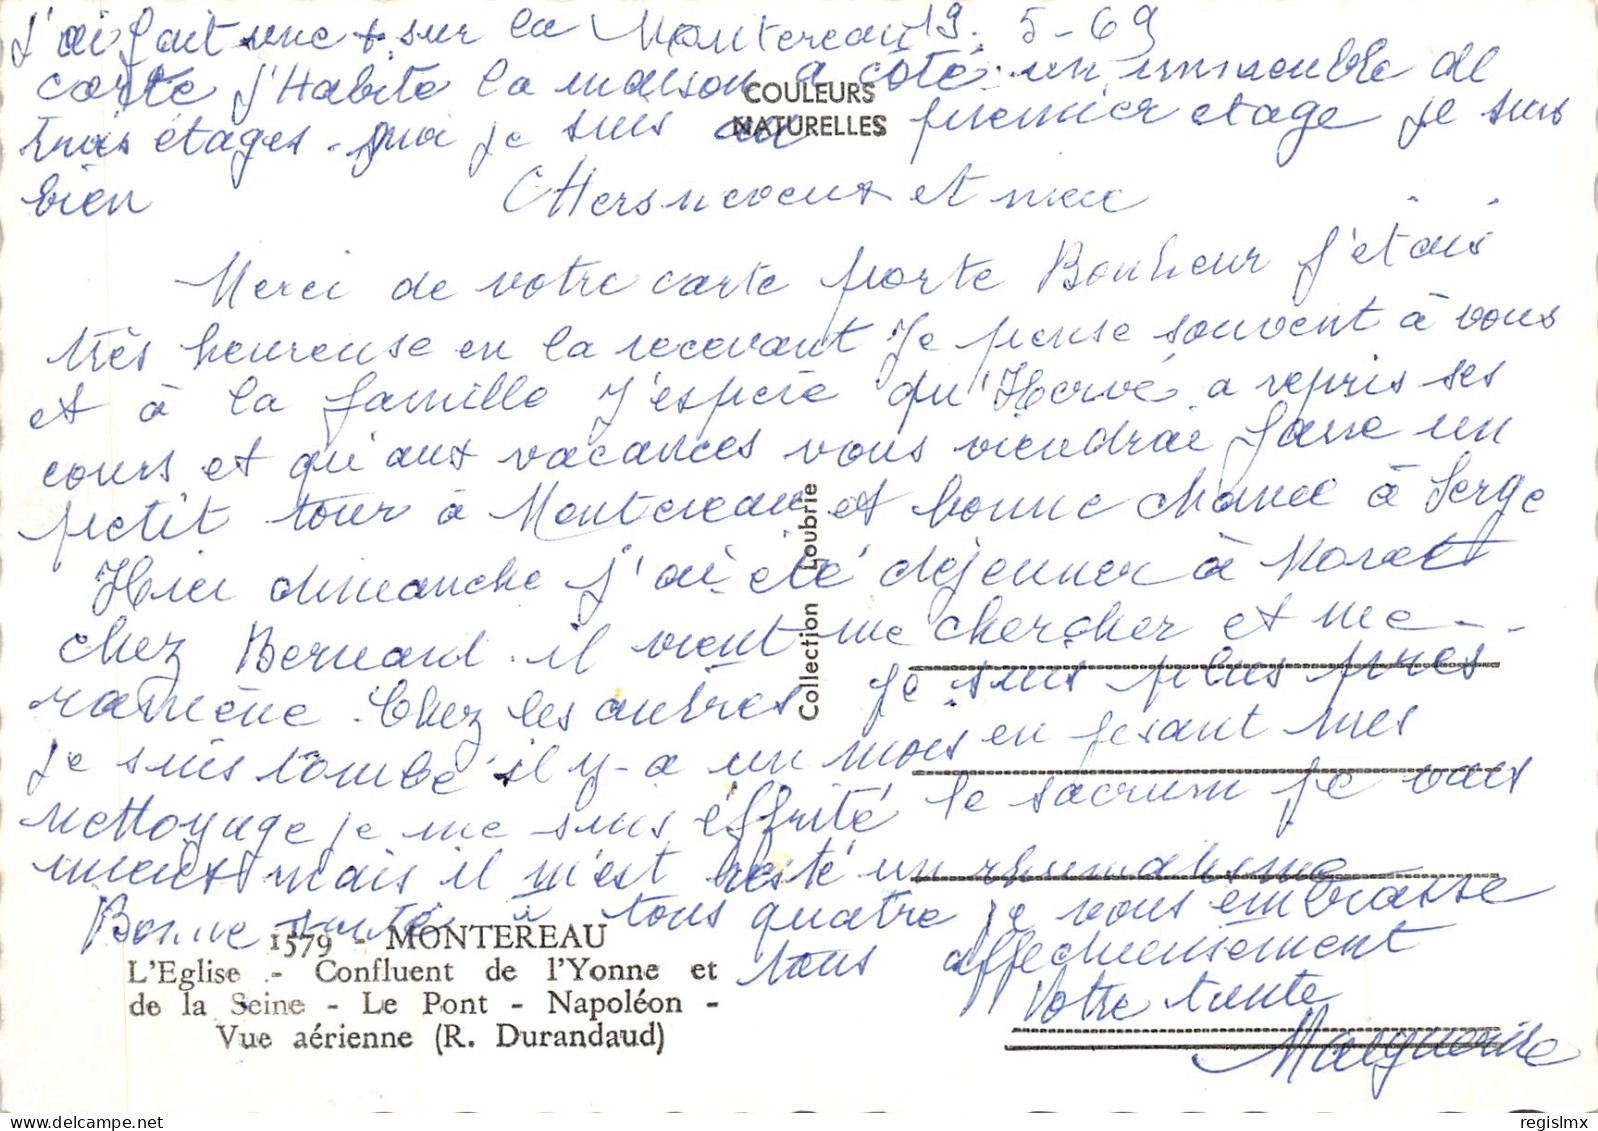 J'ai fait une + sur la Montereau 19-5-69
carte j'Habite la maison a côté un immeuble de
trois étages. moi je suis au premier etage je suis
bien
COULEURS
NATURELLES
Chers neveux et niece
Merci de votre carte porte Bonheur j'étais
très heureuse en la recevant Je pense souvent à vous
et à la famille J'espère qu'Hervé a repris ses
cours et qu'aux vacances vous viendrai faire un
petit tour à Montereau et bonne chance à Serge
Hier dimanche j'ai été déjeuner à Moret
chez Bernard il vient me chercher et me
ramène. Chez les autres je suis plus près
je suis tombé il y-a un mois en fesant mes
nettoyage je me suis éffrité le sacrum je vais
mieux mais il m'est resté un rhumatisme
Bonne santé à tous quatre je vous embrasse
tous affectueusement
Votre tante
Marguerite
Collection Loubrie
1579 - MONTEREAU
L'Eglise - Confluent de l'Yonne et
de la Seine - Le Pont - Napoléon -
Vue aérienne (R. Durandaud)
regislmx